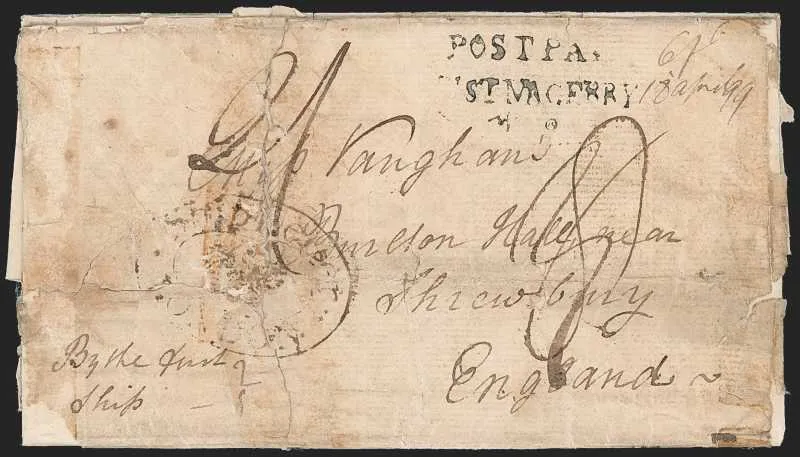 POST PA
ST NAGERRY
18 april 99
Miss Vaughan
Burlton Hall near
Shrewbury
England
By the first
Ship